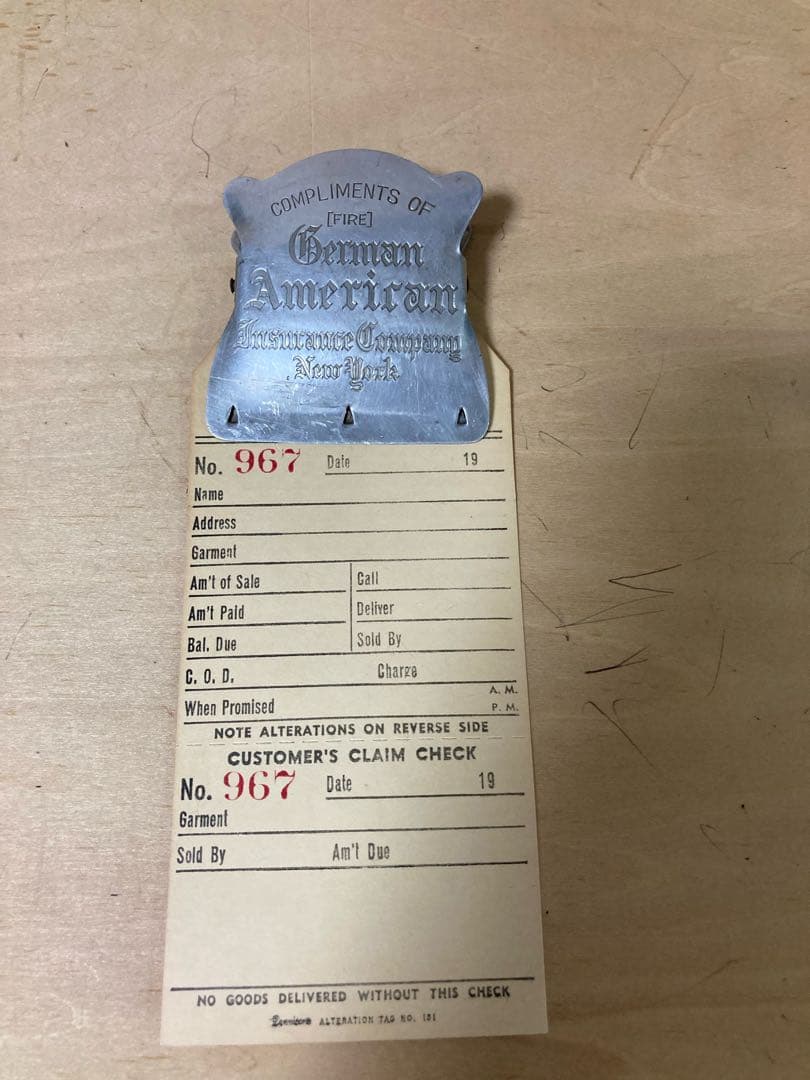 COMPLIMENTS OF
[FIRE]
German
American
Insurance Company
New York
No. 967 Date 19
Name
Address
Garment
Am't of Sale Call
Am't Paid Deliver
Bal. Due Sold By
C. O. D. Charge
A. M.
When Promised P. M.
NOTE ALTERATIONS ON REVERSE SIDE
CUSTOMER'S CLAIM CHECK
No. 967 Date 19
Garment
Sold By Am't Due
NO GOODS DELIVERED WITHOUT THIS CHECK
Dennison ALTERATION TAG NO. 151